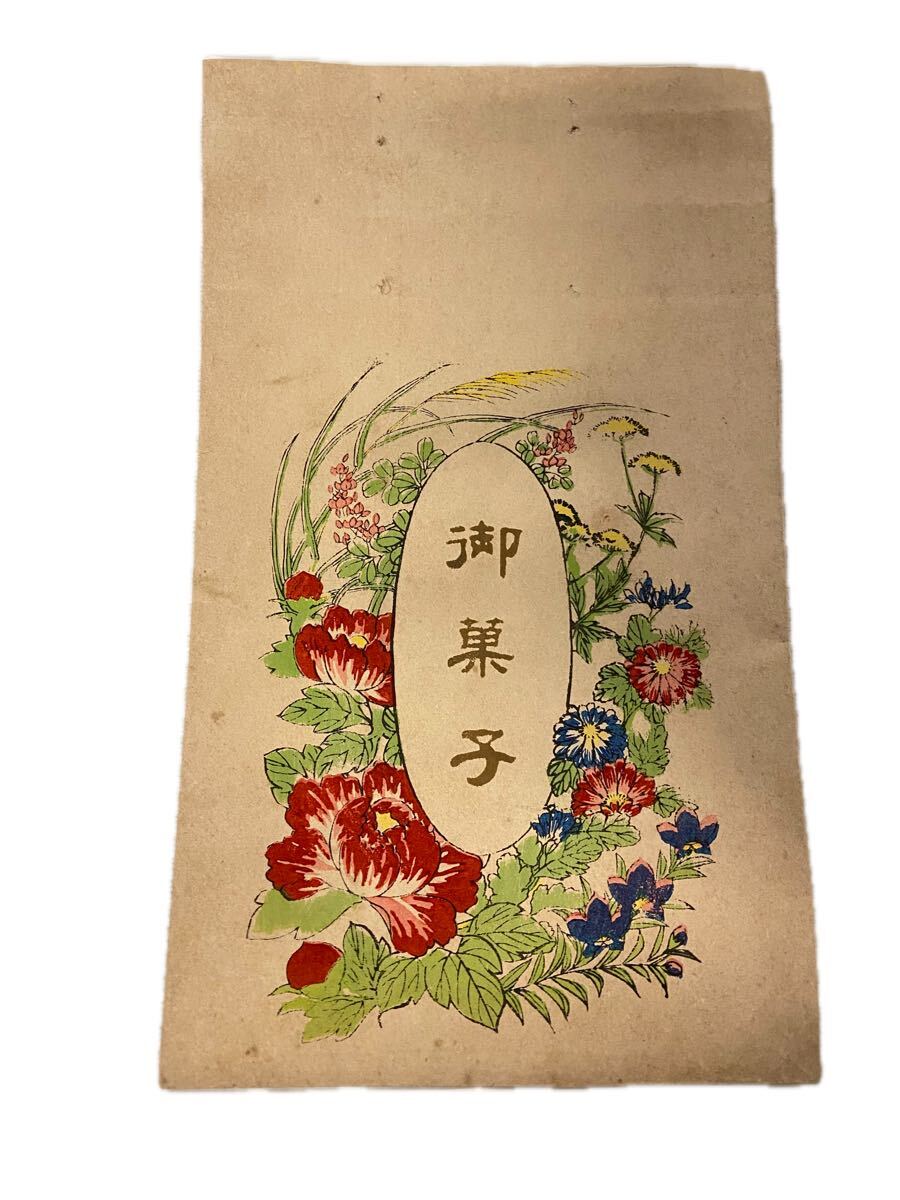 御菓子